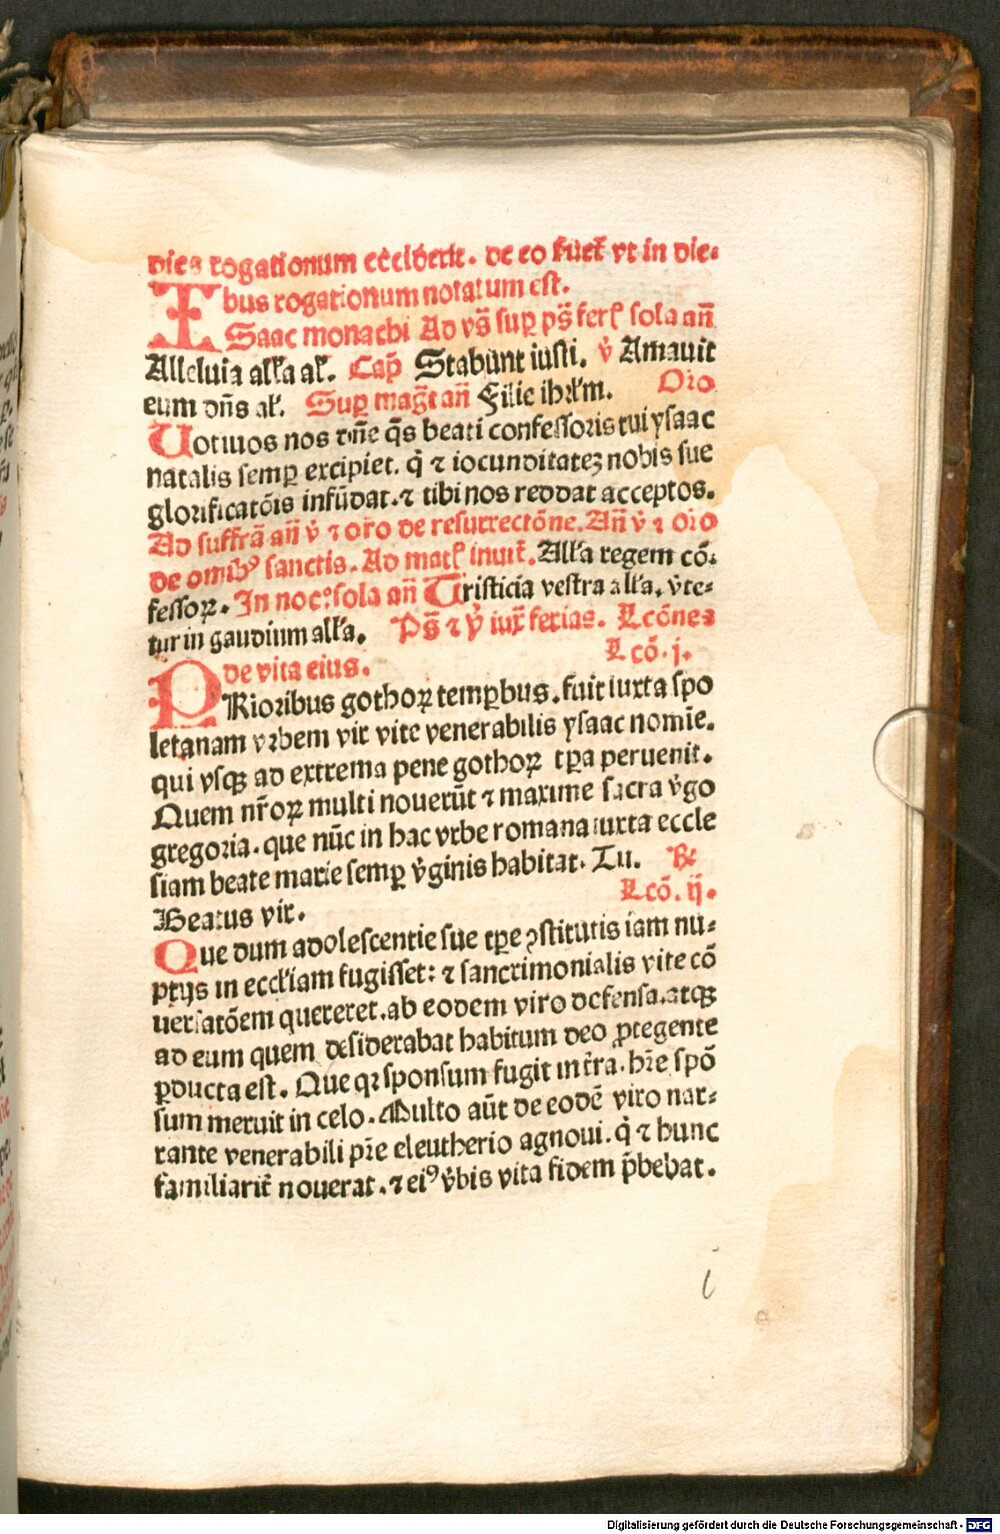 dies rogationum ceciderit. de eo fuerit vt in die⸗
bus rogationum notatum est.
ISaac monachi Ad vs̄ sup ps̄ fer sola an̄
Alleluia all'a al'. Cap̄ Stabunt iusti. v̄ Amauit
eum dn̄s al'. Sup mag̃t an̄ Filie ihrl'm. Oro
Uotiuos nos dn̄e q̄s beati confessoris tui ysaac
natalis semp excipiet. q̄ ⁊ iocunditateʒ nobis sue
glorificatōis infūdat. ⁊ tibi nos reddat acceptos.
Ad suffrā an̄ v̄ ⁊ oro de resurrectōne. An̄ v̄ ⁊ oro
de omibꝰ sanctis. Ad mat inuit̄. All'a regem cō⸗
fessoꝝ. In noc. sola an̄ Tristicia vestra all'a. v̄te⸗
tur in gaudium all'a. Ps̄ ⁊ v̄ iux̄ ferias. Lcōnes
de vita eius. Lcō. j.
PRioribus gothoꝝ tempbus. fuit iuxta spo
letanam vrbem vir vite venerabilis ysaac nomīe.
qui vsqꝫ ad extrema pene gothoꝝ tpa peruenit.
Quem nr̄oꝝ multi nouerūt ⁊ maxime sacra v̄go
gregoria. que nūc in hac vrbe romana iuxta eccle
siam beate marie semp v̄ginis habitat. Tu. ℞
Beatus vir. Lcō. ij.
Que dum adolescentie sue tpe ꝯstitutis iam nu⸗
ptijs in eccl'iam fugisset: ⁊ sanctimonialis vite cō
uersatōem quereret. ab eodem viro defensa. atqꝫ
ad eum quem desiderabat habitum deo ꝓtegente
ꝑducta est. Que qꝛ sponsum fugit in tr̄a. hr̄e spō
sum meruit in celo. Multo aūt de eodē viro nar⸗
rante venerabili pr̄e eleutherio agnoui. q̄ ⁊ hunc
familiarit̄ nouerat. ⁊ eiꝰ v̄bis vita fidem p̄bebat.
i
Digitalisierung gefördert durch die Deutsche Forschungsgemeinschaft - DFG